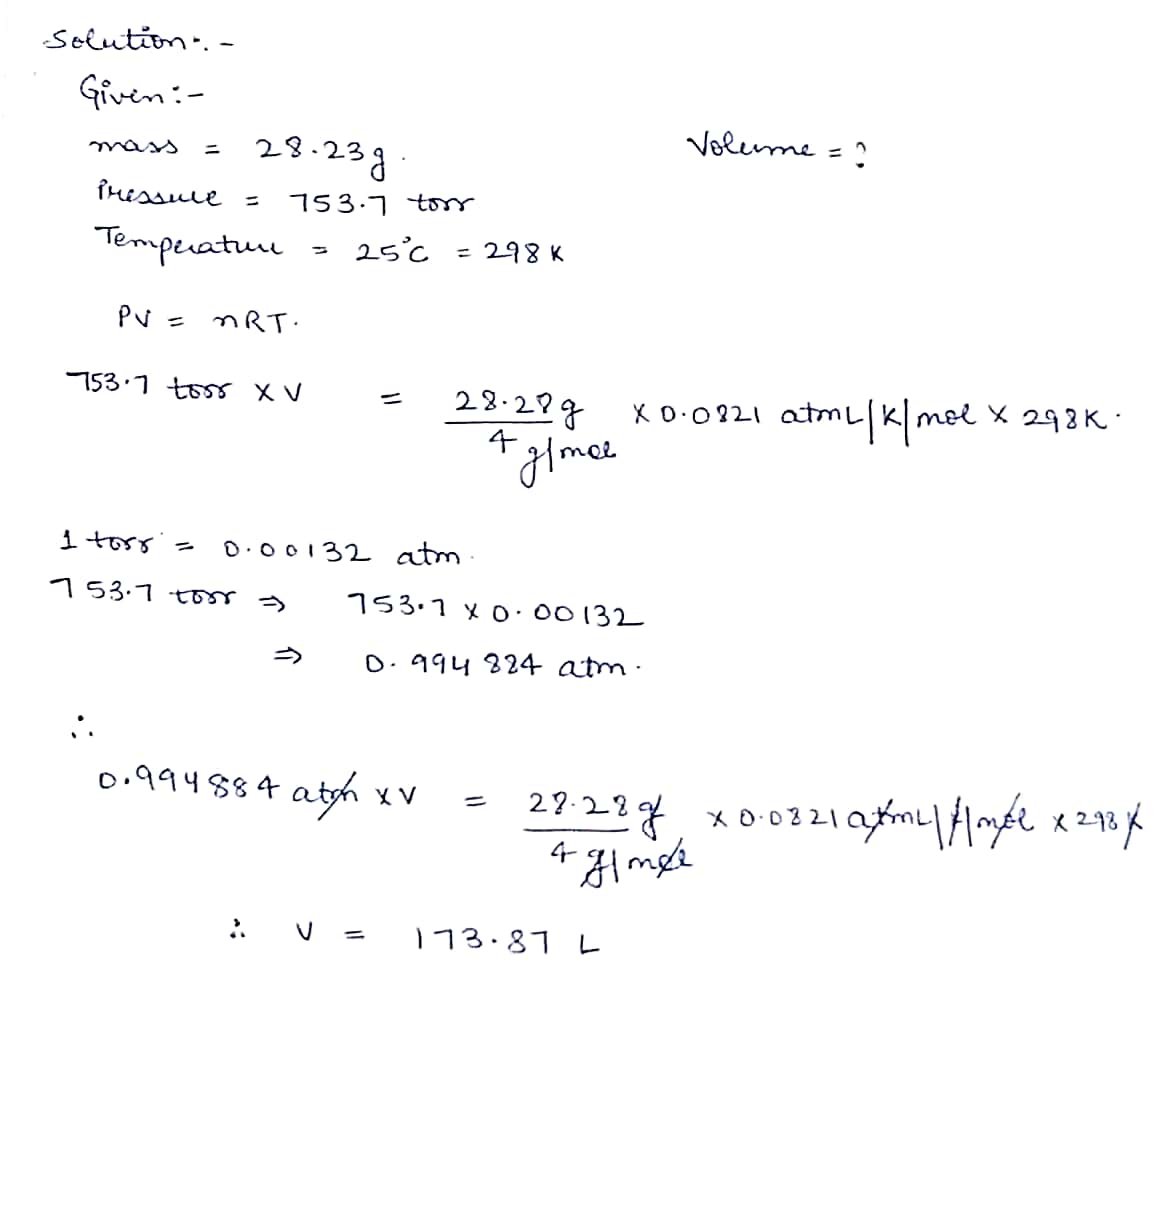 Solution:-
Given:-
mass = 28.23g.
Volume = ?
Pressure = 753.7 torr
Temperature = 25°C = 298 K
PV = nRT.
753.7 torr x V = 28.28g / 4 g/mol x 0.0821 atmL/K/mol x 298K.
1 torr = 0.00132 atm.
753.7 torr ⇒ 753.7 x 0.00132
⇒ 0.994884 atm.
∴
0.994884 atm x V = 28.28 g / 4 g/mol x 0.0821 atmL/K/mol x 298 K
∴ V = 173.87 L